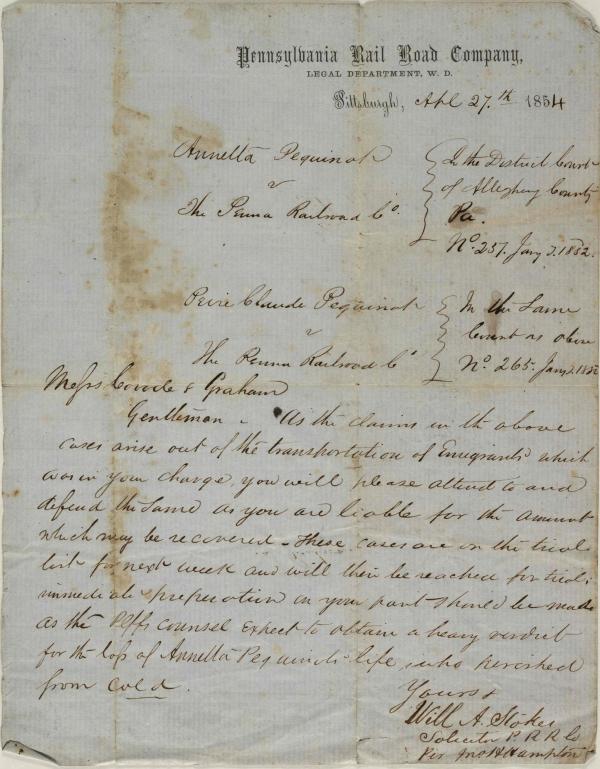 Pennsylvania Rail Road Company,
LEGAL DEPARTMENT, W. D.
Pittsburgh, Apl 27.th 1854
Annetta Pequinot
v
The Penna Railroad Co.
In the District Court
of Allegheny County
Pa.
No. 257. Jany T. 1852.
Peire Claude Pequinot
v
The Penna Railroad Co
In the Same
Court as above
No. 265. Jany T. 1852
Messrs Covode & Graham
Gentleman - As the claims in the above
cases arise out of the transportation of Emigrants which
was in your charge, you will please attend to and
defend the Same as you are liable for the amount
which may be recovered - These cases are on the trial
list for next week and will then be reached for trial:
immediate preperation on your part should be made
as the Plffs counsel expect to obtain a heavy verdict
for the loss of Annetta Pequinots life, who perished
from cold.
Yours &
Will A. Stokes
Solicitor P. R. R. Co
Per Jno H Hampton